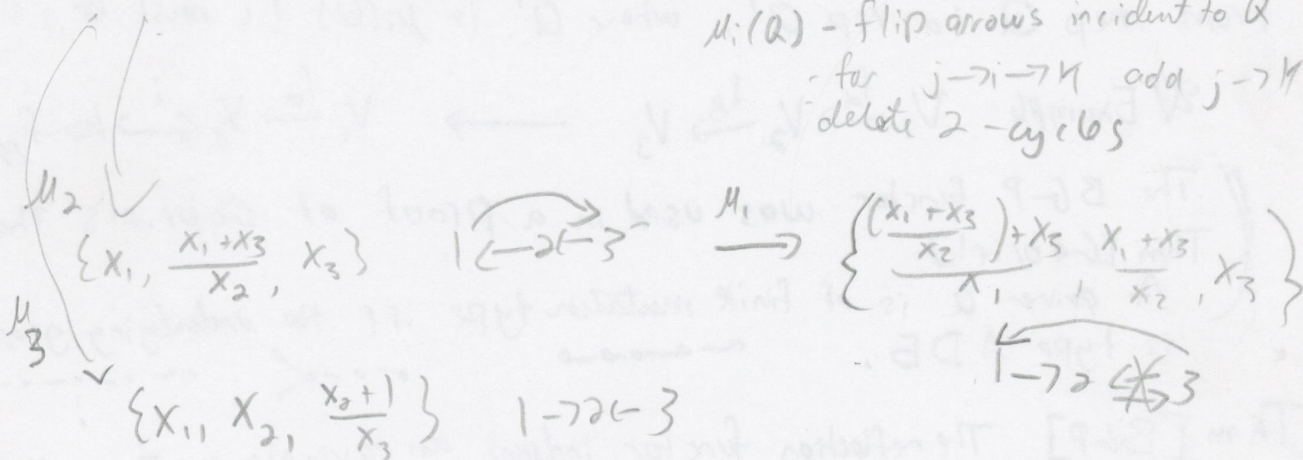 μᵢ(Q) - flip arrows incident to Q
- for j→i→k add j→k
- delete 2-cycles
μ₂
{x₁, (x₁+x₃)/x₂, x₃} 1←2←3 μ₁ → {((x₁+x₃)/x₂)+x₃)/x₁, (x₁+x₃)/x₂, x₃}
μ₃
1→2 3
{x₁, x₂, (x₂+1)/x₃} 1→2←3